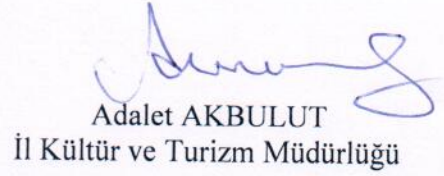 Adalet AKBULUT
İl Kültür ve Turizm Müdürlüğü